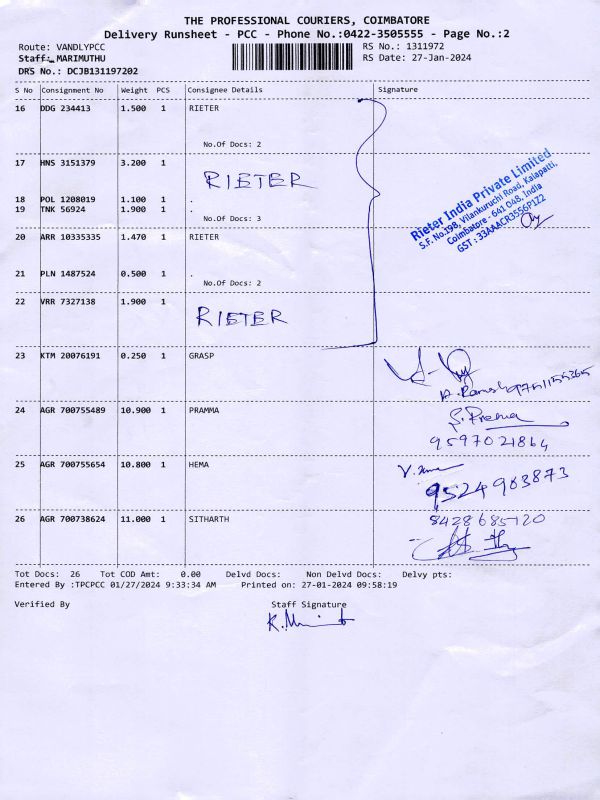 THE PROFESSIONAL COURIERS, COIMBATORE
Delivery Runsheet - PCC - Phone No.:0422-3505555 - Page No.:2
Route: VANDLYPCC RS No.: 1311972
Staff: MARIMUTHU RS Date: 27-Jan-2024
DRS No.: DCJB131197202
S No Consignment No Weight PCS Consignee Details Signature
16 DDG 234413 1.500 1 RIETER
No.Of Docs: 2
17 HNS 3151379 3.200 1
RIETER
18 POL 1208019 1.100 1 .
19 TNK 56924 1.900 1 .
No.Of Docs: 3
Rieter India Private Limited
S.F. No.198, Vilankuruchi Road, Kalapatti,
Coimbatore - 641 048, India
GST : 33AAACR3556P1Z2
20 ARR 10335335 1.470 1 RIETER
21 PLN 1487524 0.500 1 .
No.Of Docs: 2
22 VRR 7327138 1.900 1
RIETER
23 KTM 20076191 0.250 1 GRASP
24 AGR 700755489 10.900 1 PRAMMA
9597021864
25 AGR 700755654 10.800 1 HEMA
9524963873
26 AGR 700738624 11.000 1 SITHARTH
8428685720
Tot Docs: 26 Tot COD Amt: 0.00 Delvd Docs: Non Delvd Docs: Delvy pts:
Entered By :TPCPCC 01/27/2024 9:33:34 AM Printed on: 27-01-2024 09:58:19
Verified By Staff Signature